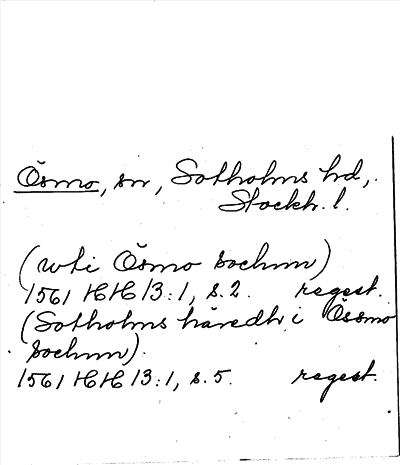 Ösmo, sn, Sotholms hd,
Stockh. l.
(wti Ösmo sochnn)
1561 HH 13:1, s. 2. regest.
(Sotholms häredh i Össmo
sochnn).
1561 HH 13:1, s. 5. regest.